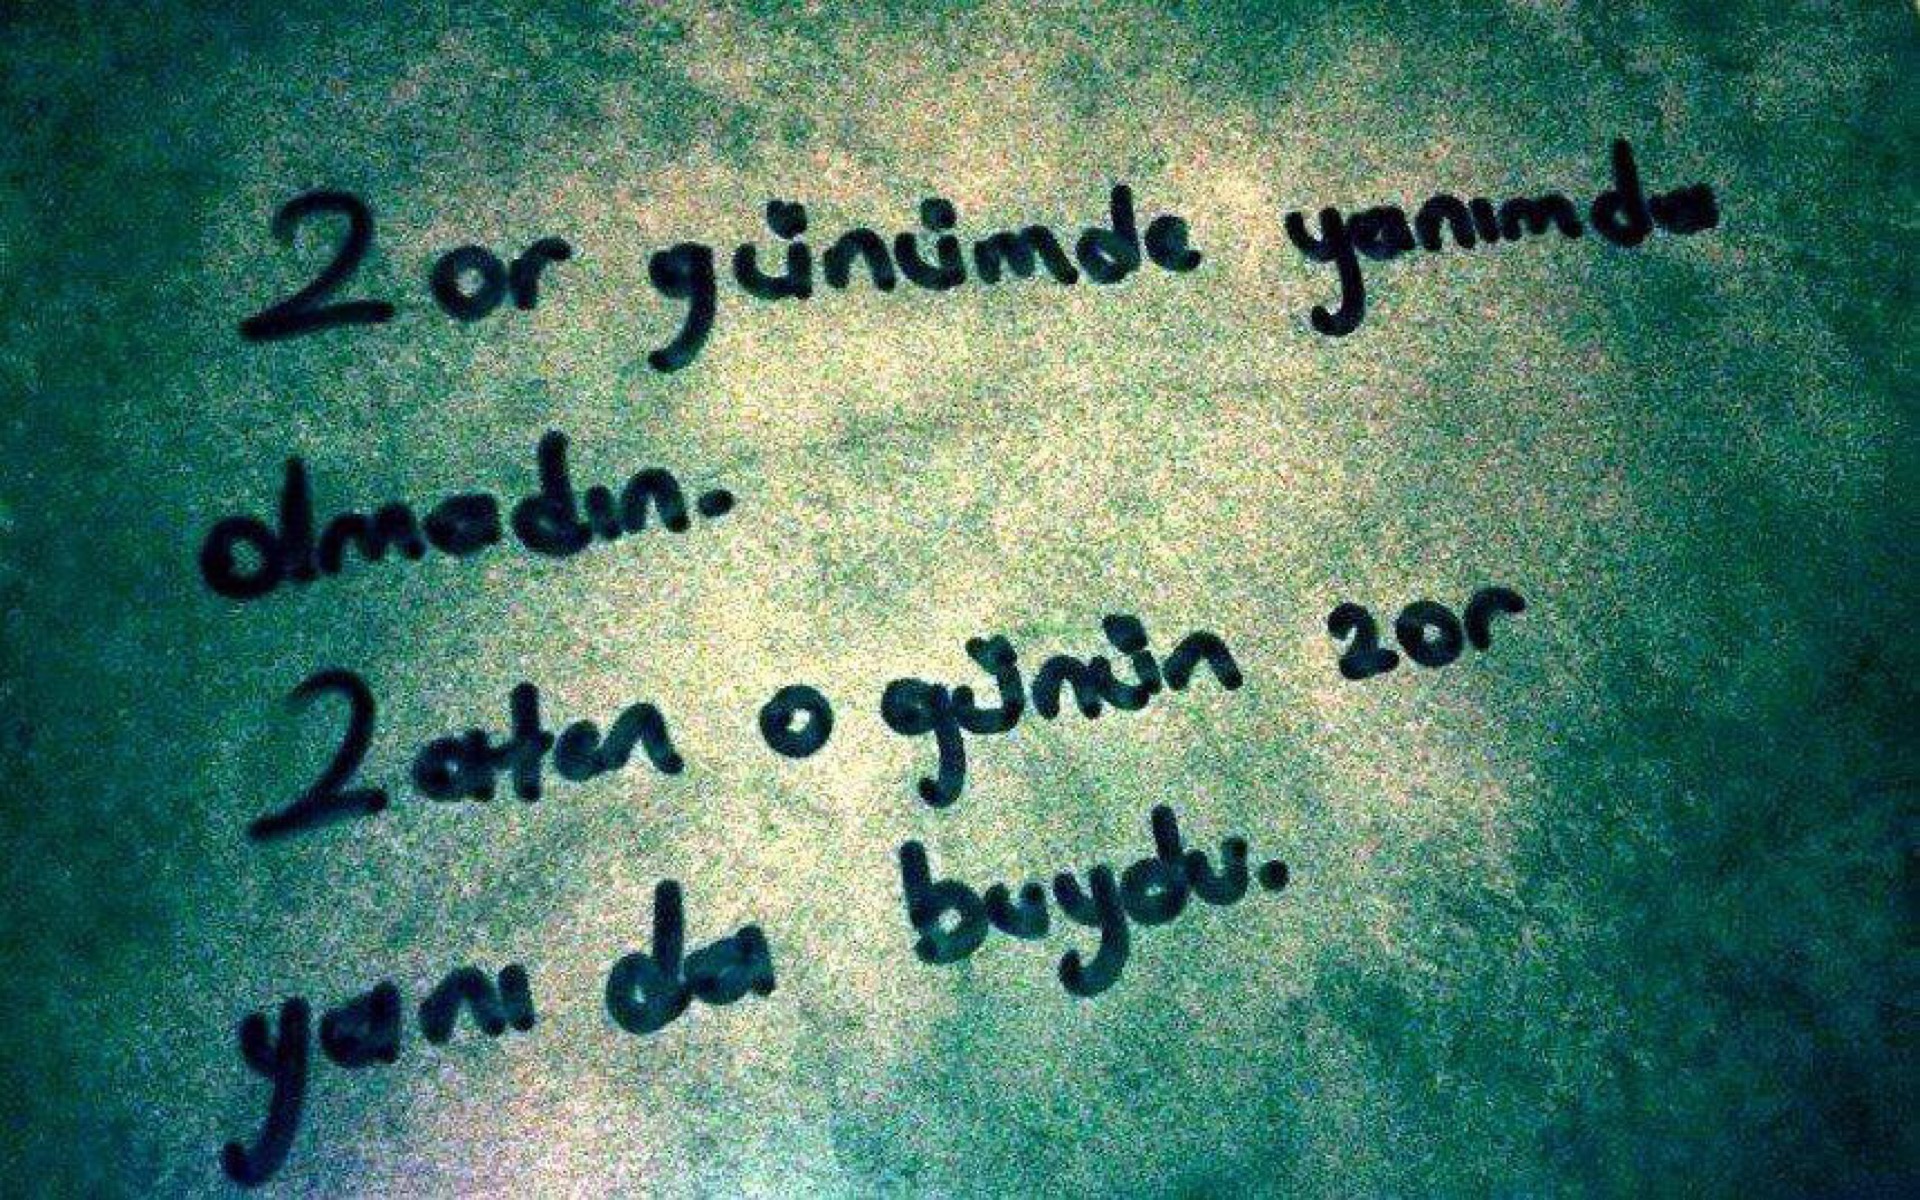 Zor günümde yanımda
olmadın.
Zaten o günün zor
yanı da buydu.